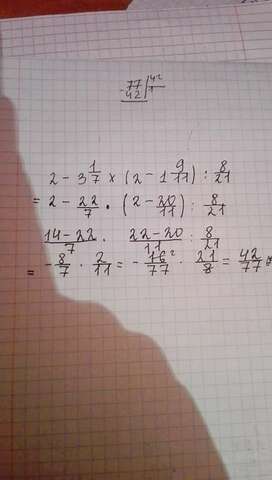 -77 |42
42 | 1
2 - 3 1/7 × (2 - 1 9/11) : 8/21
= 2 - 22/7 · (2 - 20/11) : 8/21
14-22/7 · 22-20/11 : 8/21
= - 8/7 · 2/11 = - 16²/77 · 21/8 = 42/77